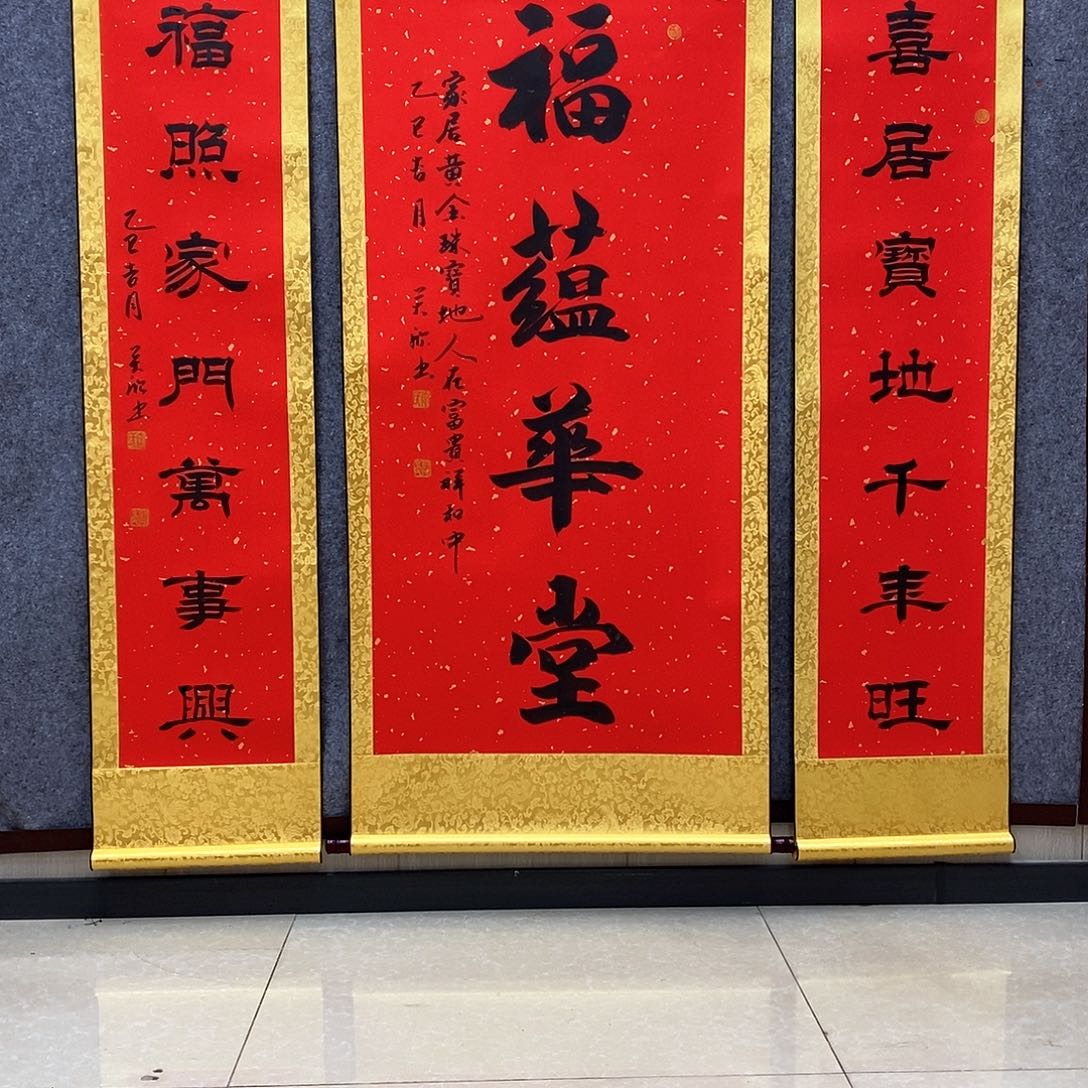 喜居寶地千年旺
福蘊華堂
家居黃金珠寶地人在富貴祥和中
乙巳吉月
福照家門萬事興
乙巳吉月